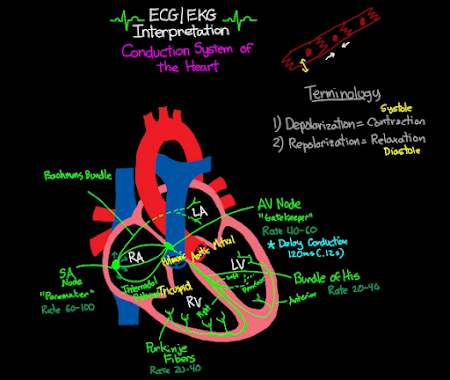 ECG/EKG
Interpretation
Conduction System of
the Heart
Terminology
Systole
1) Depolarization = Contraction
2) Repolarization = Relaxation
Diastole
Bachmans Bundle
LA
AV Node
"Gatekeeper"
Rate 40-60
* Delay Conduction
120ms (.12s)
RA
Pulmonic
Aortic
Mitral
LV
SA
Node
"Pacemaker"
Rate 60-100
Internodal
Tricuspid
Left
Posterior
Bundle of His
Rate 20-40
Anterior
RV
Right
Purkinje
Fibers
Rate 20-40